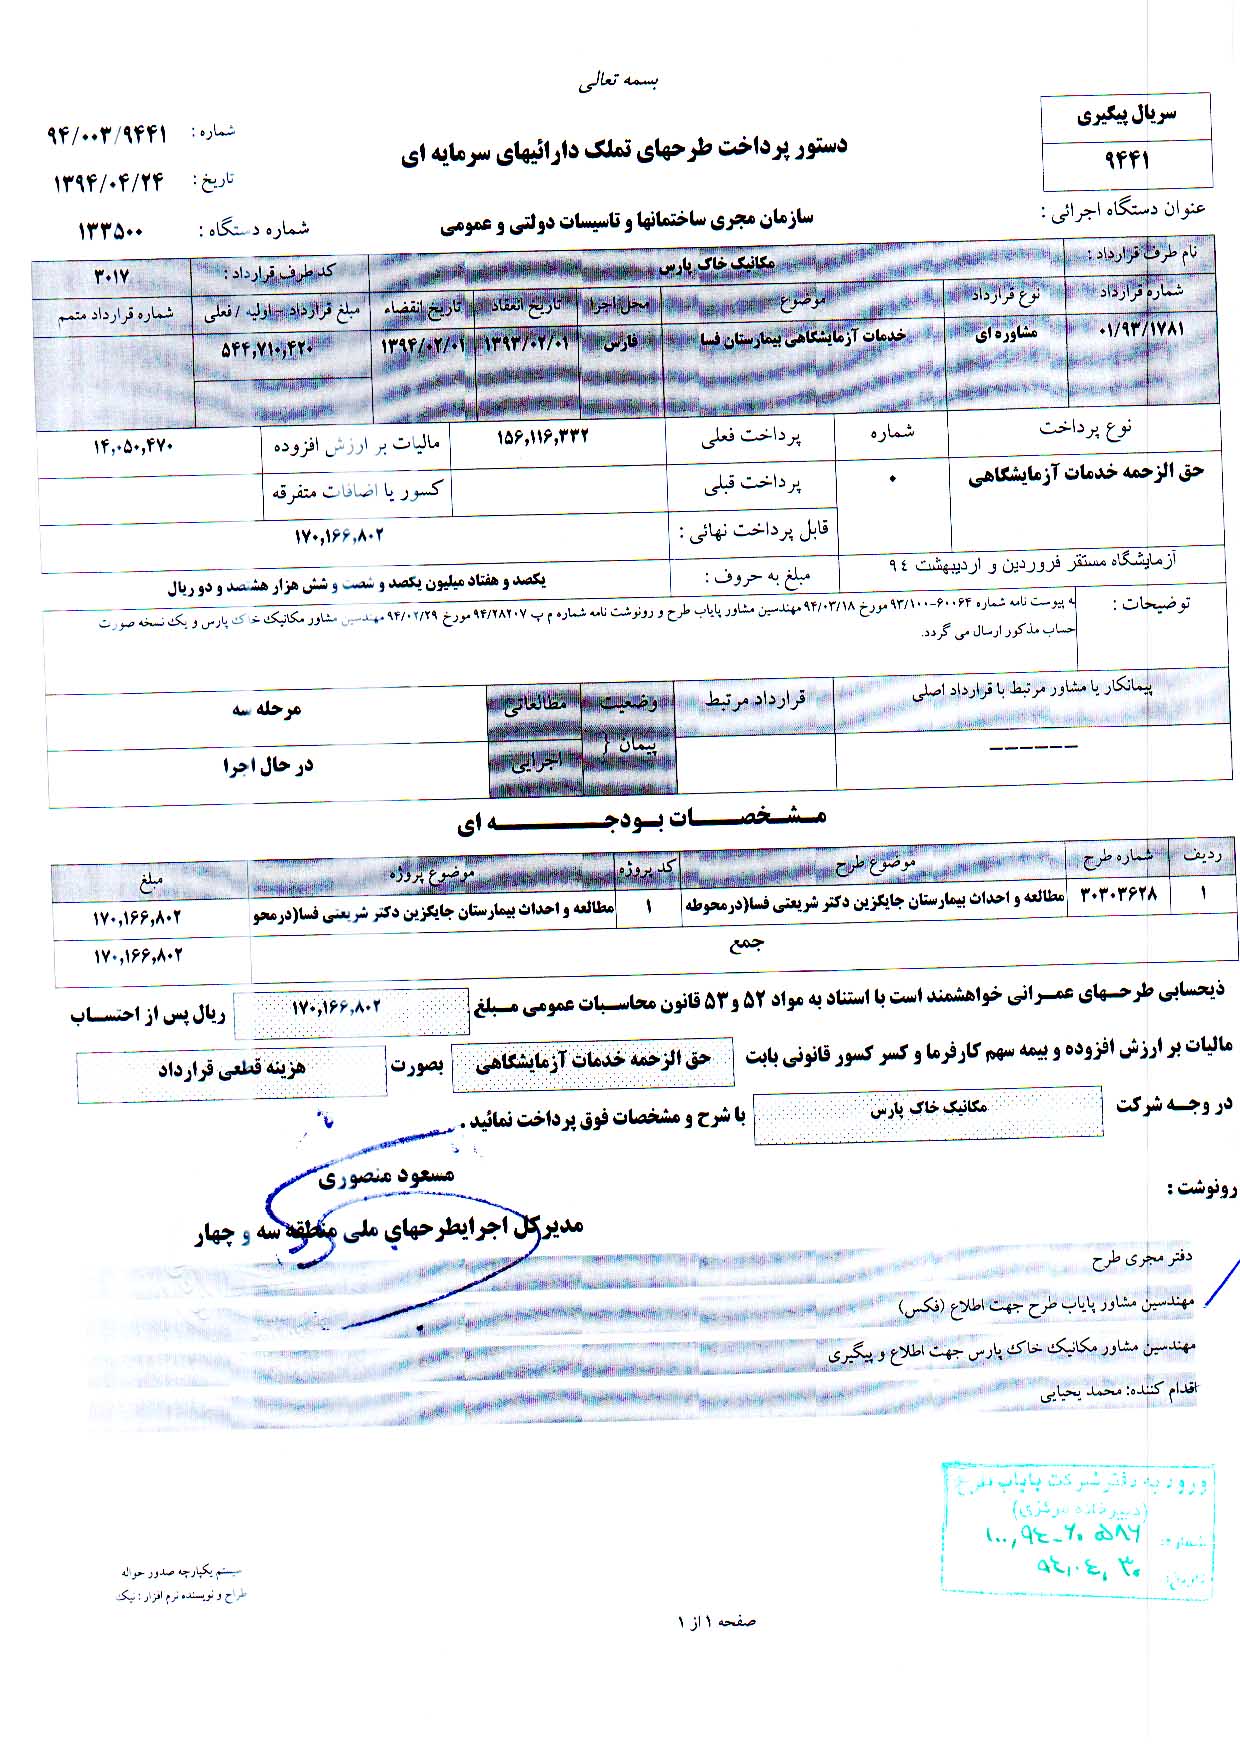 بسمه تعالی
سریال پیگیری
۹۴۴۱
دستور پرداخت طرحهای تملک دارائیهای سرمایه ای
شماره : ۹۴/۰۰۳/۹۴۴۱
تاریخ : ۱۳۹۴/۰۴/۲۴
عنوان دستگاه اجرائی : سازمان مجری ساختمانها و تاسیسات دولتی و عمومی شماره دستگاه : ۱۳۳۵۰۰
نام طرف قرارداد : مکانیک خاک پارس کد طرف قرارداد : ۳۰۱۷
شماره قرارداد نوع قرارداد موضوع محل اجرا تاریخ انعقاد تاریخ انقضاء مبلغ قرارداد - اولیه / فعلی شماره قرارداد متمم
۰۱/۹۳/۱۷۸۱ مشاوره ای خدمات آزمایشگاهی بیمارستان فسا فارس ۱۳۹۳/۰۲/۰۱ ۱۳۹۴/۰۲/۰۱ ۵۴۴,۷۱۰,۴۲۰
نوع پرداخت شماره پرداخت فعلی ۱۵۶,۱۱۶,۳۳۲ مالیات بر ارزش افزوده ۱۴,۰۵۰,۴۷۰
حق الزحمه خدمات آزمایشگاهی ۰ پرداخت قبلی کسور یا اضافات متفرقه
قابل پرداخت نهائی : ۱۷۰,۱۶۶,۸۰۲
آزمایشگاه مستقر فروردین و اردیبهشت ۹٤ مبلغ به حروف : یکصد و هفتاد میلیون یکصد و شصت و شش هزار هشتصد و دو ریال
توضیحات : به پیوست نامه شماره ۶۰۰۶۴-۹۳/۱۰۰ مورخ ۹۴/۰۳/۱۸ مهندسین مشاور پایاب طرح و رونوشت نامه شماره م پ ۹۴/۲۸۲۰۷ مورخ ۹۴/۰۲/۲۹ مهندسین مشاور مکانیک خاک پارس و یک نسخه صورت
حساب مذکور ارسال می گردد.
پیمانکار یا مشاور مرتبط با قرارداد اصلی قرارداد مرتبط وضعیت پیمان { مطالعاتی مرحله سه
------ اجرایی در حال اجرا
مـشـخـصـــات بـودجـــــه ای
ردیف شماره طرح موضوع طرح کد پروژه موضوع پروژه مبلغ
۱ ۳۰۳۰۳۶۲۸ مطالعه و احداث بیمارستان جایگزین دکتر شریعتی فسا(درمحوطه ۱ مطالعه و احداث بیمارستان جایگزین دکتر شریعتی فسا(درمحو ۱۷۰,۱۶۶,۸۰۲
جمع ۱۷۰,۱۶۶,۸۰۲
ذیحسابی طرحـهای عمـرانی خواهشمند است با استناد به مواد ۵۲ و ۵۳ قانون محاسبات عمومی مـبلغ ۱۷۰,۱۶۶,۸۰۲ ریال پس از احتساب
مالیات بر ارزش افزوده و بیمه سهم کارفرما و کسر کسور قانونی بابت حق الزحمه خدمات آزمایشگاهی بصورت هزینه قطعی قرارداد
در وجـه شرکت مکانیک خاک پارس با شرح و مشخصات فوق پرداخت نمائید .
مسعود منصوری
مدیرکل اجرایطرحهای ملی منطقه سه و چهار
رونوشت :
دفتر مجری طرح
مهندسین مشاور پایاب طرح جهت اطلاع (فکس)
مهندسین مشاور مکانیک خاک پارس جهت اطلاع و پیگیری
اقدام کننده: محمد یحیایی
ورود به دفتر شرکت پایاب طرح
(دبیرخانه مرکزی)
شماره:
تاریخ:
سیستم یکپارچه صدور حواله
طراح و نویسنده نرم افزار : نیک
صفحه ۱ از ۱